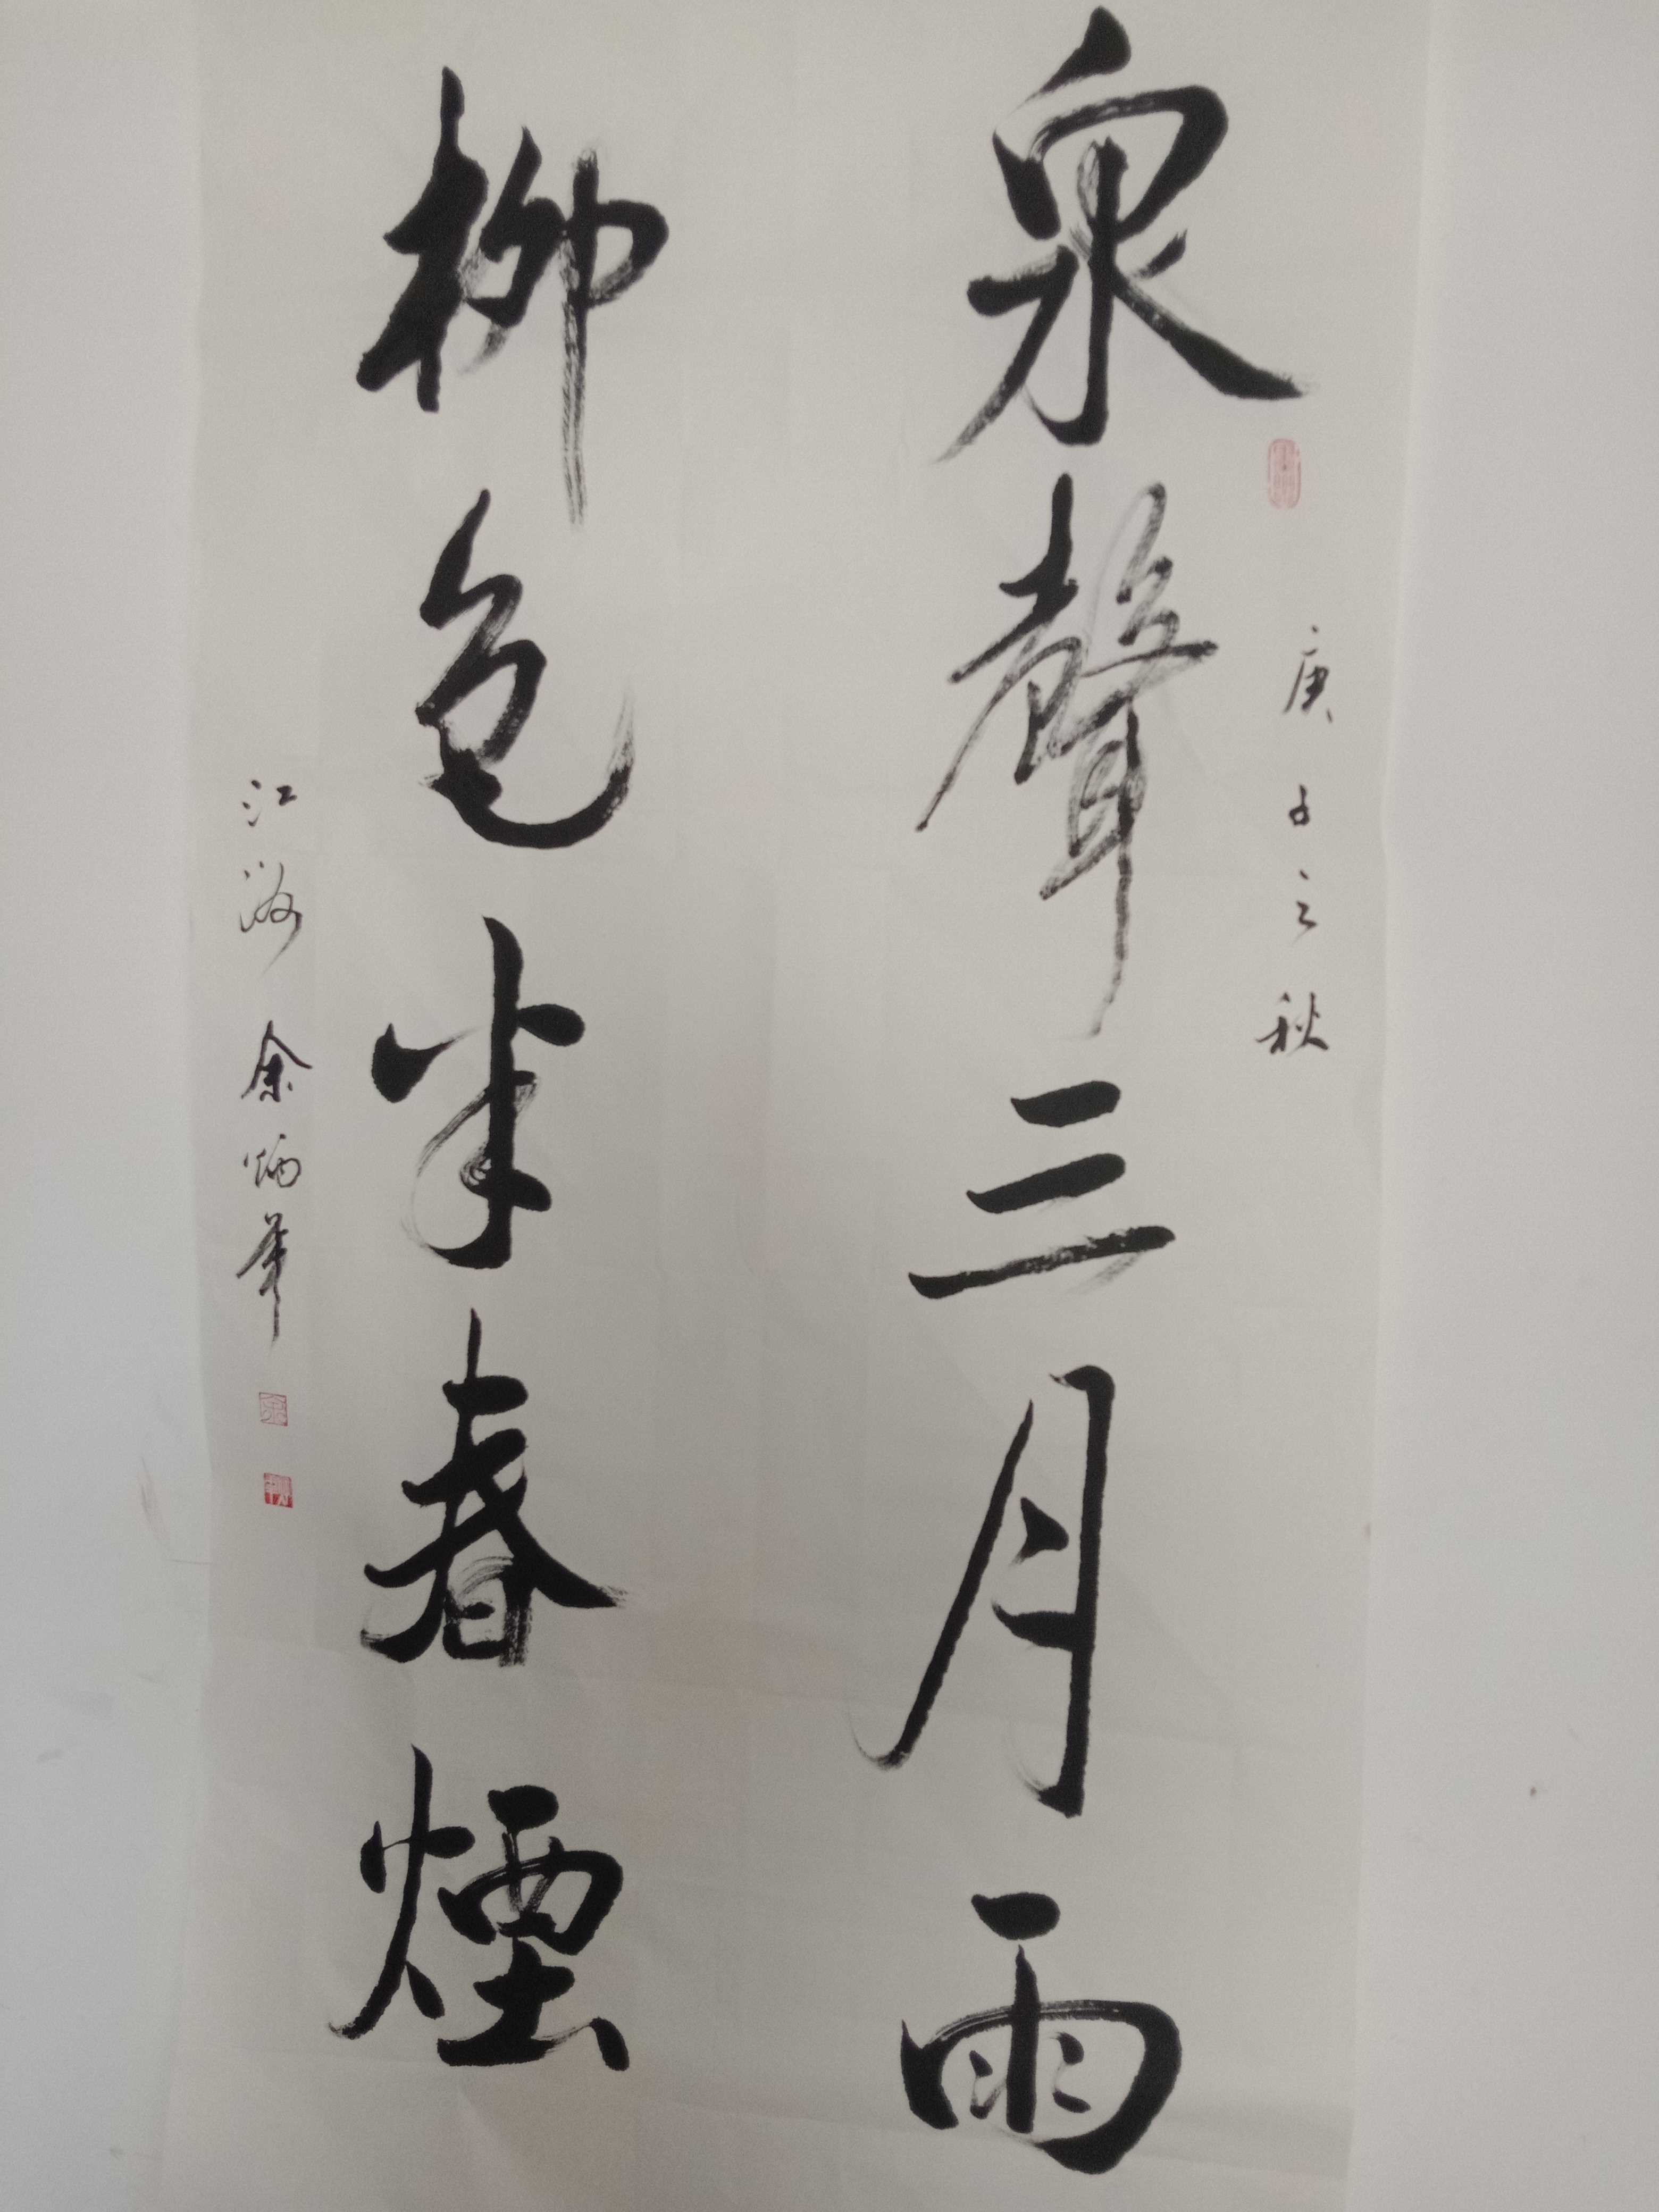 庚子之秋
泉聲三月雨
柳色半春煙
江海余炳华